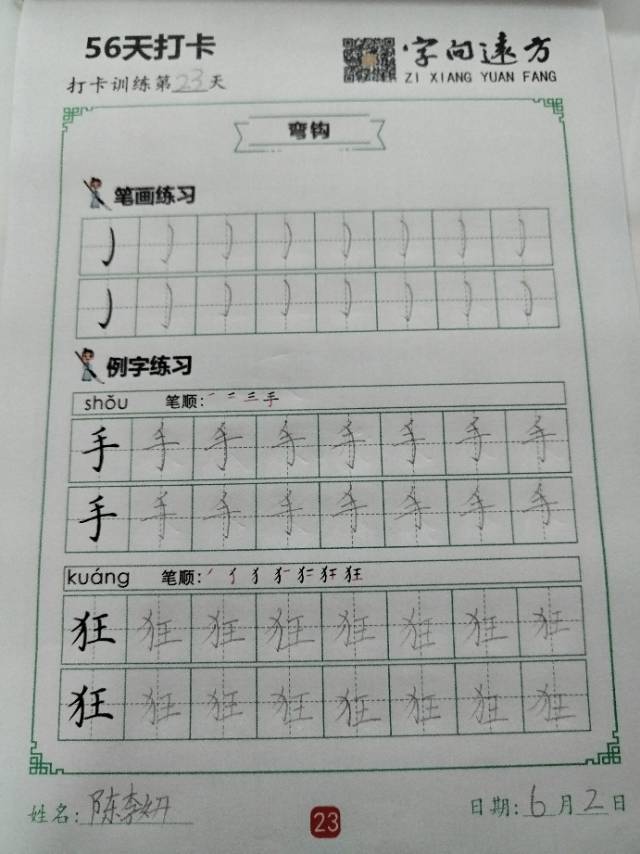 56天打卡
字向远方
ZI XIANG YUAN FANG
打卡训练第23天
弯钩
笔画练习
例字练习
shǒu 笔顺: 一 二 三 手
手 手 手 手 手 手 手 手
手 手 手 手 手 手 手 手
kuáng 笔顺:
狂 狂 狂 狂 狂 狂 狂 狂
狂 狂 狂 狂 狂 狂 狂 狂
姓名: 陈李妍
23
日期: 6月2日